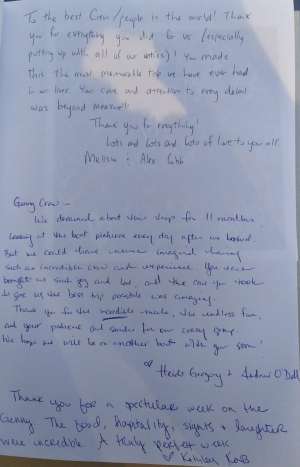 To the best Crew/people in the world! Thank
you for everything you did for us (especially
putting up with all of our antics)! You made
this the most memorable trip we have ever had
in our lives. Your care and attention to every detail
was beyond measure!!
Thank you for everything!
Lots and lots and lots of love to you all.
Melissa & Alex
Genny Crew -
We dreamed about this for 11 months
looking at the best pictures every day after we booked
But we could have never imagined having
such an incredible crew and experience. You
brought us such joy and and the care you took
to give us the best trip possible was amazing.
Thank you for the incredible meals, the endless fun,
and your patience and for our crazy group.
We hope we will be on another boat with you soon!
Heidi Gregory & Andrew
Thank you for a spectacular week on the
Genny. The food, hospitality, sights & laughter
were incredible. A truly perfect week